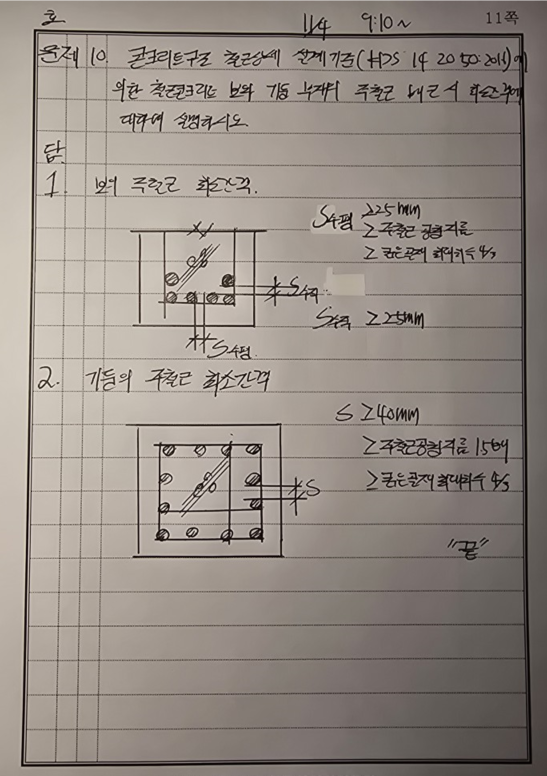 호 11/4 9:10~ 11쪽
문제 10. 콘크리트구조 철근상세 설계기준(KDS 14 20 50:2021)에
의한 철근콘크리트 보와 기둥 부재의 주철근 배근시 최소간격에
대하여 설명하시오.
답.
1. 보의 주철근 최소간격.
S수평 ≥25mm
≥주철근 공칭지름
≥굵은골재 최대치수 4/3
S수직
S수직 ≥25mm
S수평.
2. 기둥의 주철근 최소간격
S ≥40mm
≥주철근공칭지름 1.5배
≥굵은골재 최대치수 4/3
S
"끝"